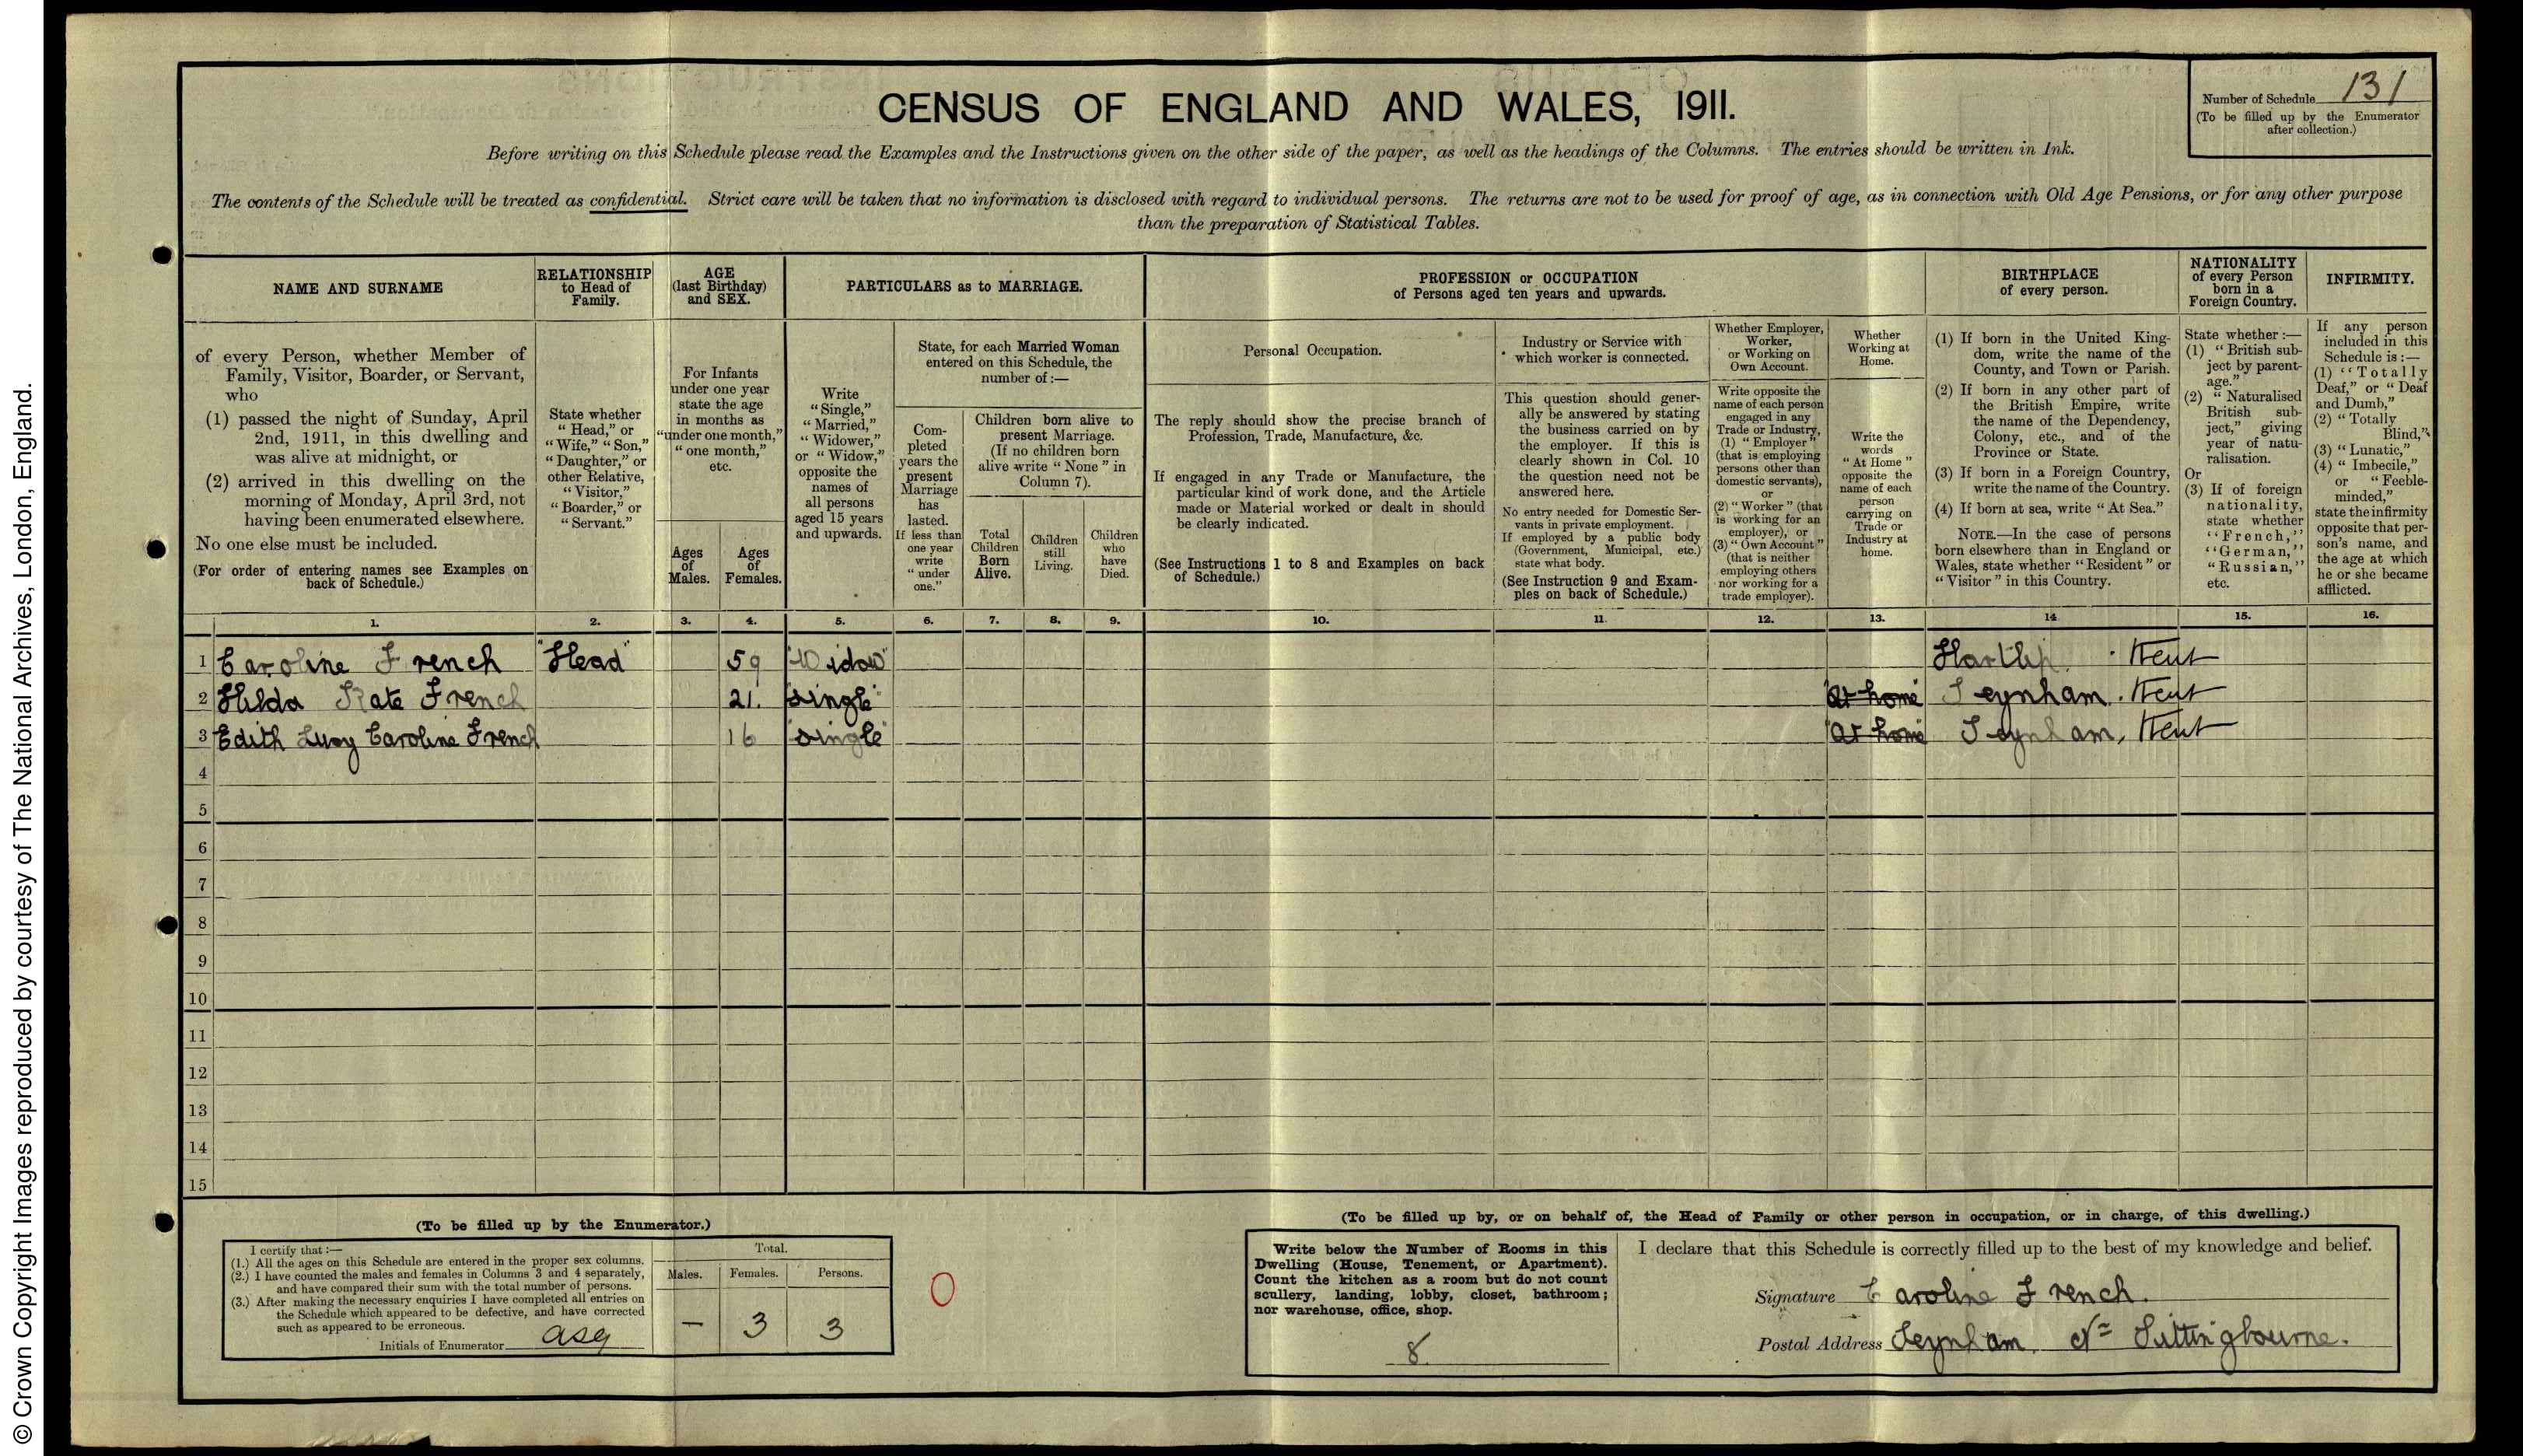 © Crown Copyright Images reproduced by courtesy of The National Archives, London, England.
CENSUS OF ENGLAND AND WALES, 1911.
Number of Schedule 131
(To be filled up by the Enumerator
after collection.)
Before writing on this Schedule please read the Examples and the Instructions given on the other side of the paper, as well as the headings of the Columns. The entries should be written in Ink.
The contents of the Schedule will be treated as confidential. Strict care will be taken that no information is disclosed with regard to individual persons. The returns are not to be used for proof of age, as in connection with Old Age Pensions, or for any other purpose
than the preparation of Statistical Tables.
NAME AND SURNAME
of every Person, whether Member of
Family, Visitor, Boarder, or Servant,
who
(1) passed the night of Sunday, April
2nd, 1911, in this dwelling and
was alive at midnight, or
(2) arrived in this dwelling on the
morning of Monday, April 3rd, not
having been enumerated elsewhere.
No one else must be included.
(For order of entering names see Examples on
back of Schedule.)
RELATIONSHIP
to Head of
Family.
State whether
“Head,” or
“Wife,” “Son,”
“Daughter,” or
other Relative,
“Visitor,”
“Boarder,” or
“Servant.”
AGE
(last Birthday)
and SEX.
For Infants
under one year
state the age
in months as
“under one month,”
“one month,”
etc.
Ages
of
Males.
Ages
of
Females.
PARTICULARS as to MARRIAGE.
Write
“Single,”
“Married,”
“Widower,”
or “Widow,”
opposite the
names of
all persons
aged 15 years
and upwards.
State, for each Married Woman
entered on this Schedule, the
number of :—
Com-
pleted
years the
present
Marriage
has
lasted.
If less than
one year
write
“under
one.”
Children born alive to
present Marriage.
(If no children born
alive write “None” in
Column 7).
Total
Children
Born
Alive.
Children
still
Living.
Children
who
have
Died.
PROFESSION or OCCUPATION
of Persons aged ten years and upwards.
Personal Occupation.
The reply should show the precise branch of
Profession, Trade, Manufacture, &c.
If engaged in any Trade or Manufacture, the
particular kind of work done, and the Article
made or Material worked or dealt in should
be clearly indicated.
(See Instructions 1 to 8 and Examples on back
of Schedule.)
Industry or Service with
which worker is connected.
This question should gener-
ally be answered by stating
the business carried on by
the employer. If this is
clearly shown in Col. 10
the question need not be
answered here.
No entry needed for Domestic Ser-
vants in private employment.
If employed by a public body
(Government, Municipal, etc.)
state what body.
(See Instruction 9 and Exam-
ples on back of Schedule.)
Whether Employer,
Worker,
or Working on
Own Account.
Write opposite the
name of each person
engaged in any
Trade or Industry,
(1) “Employer”
(that is employing
persons other than
domestic servants),
or
(2) “Worker” (that
is working for an
employer), or
(3) “Own Account”
(that is neither
employing others
nor working for a
trade employer).
Whether
Working at
Home.
Write the
words
“At Home”
opposite the
name of each
person
carrying on
Trade or
Industry at
home.
BIRTHPLACE
of every person.
(1) If born in the United King-
dom, write the name of the
County, and Town or Parish.
(2) If born in any other part of
the British Empire, write
the name of the Dependency,
Colony, etc., and of the
Province or State.
(3) If born in a Foreign Country,
write the name of the Country.
(4) If born at sea, write “At Sea.”
NOTE.—In the case of persons
born elsewhere than in England or
Wales, state whether “Resident” or
“Visitor” in this Country.
NATIONALITY
of every Person
born in a
Foreign Country.
State whether :—
(1) “British sub-
ject by parent-
age.”
(2) “Naturalised
British sub-
ject,” giving
year of natu-
ralisation.
Or
(3) If of foreign
nationality,
state whether
“French,”
“German,”
“Russian,”
etc.
INFIRMITY.
If any person
included in this
Schedule is :—
(1) “Totally
Deaf,” or “Deaf
and Dumb,”
(2) “Totally
Blind,”
(3) “Lunatic,”
(4) “Imbecile,”
or “Feeble-
minded,”
state the infirmity
opposite that per-
son's name, and
the age at which
he or she became
afflicted.
1. 2. 3. 4. 5. 6. 7. 8. 9. 10. 11. 12. 13. 14 15. 16.
1 Caroline French "Head" 59 "Widow" Hartlip. Kent
2 Hilda Kate French 21. "Single" "At home" Teynham. Kent
3 Edith Lucy Caroline French 16 "Single" "At home" Teynham, Kent
4
5
6
7
8
9
10
11
12
13
14
15
(To be filled up by the Enumerator.)
I certify that :—
(1.) All the ages on this Schedule are entered in the proper sex columns.
(2.) I have counted the males and females in Columns 3 and 4 separately,
and have compared their sum with the total number of persons.
(3.) After making the necessary enquiries I have completed all entries on
the Schedule which appeared to be defective, and have corrected
such as appeared to be erroneous.
Initials of Enumerator
Total.
Males. Females. Persons.
— 3 3
0
(To be filled up by, or on behalf of, the Head of Family or other person in occupation, or in charge, of this dwelling.)
Write below the Number of Rooms in this
Dwelling (House, Tenement, or Apartment).
Count the kitchen as a room but do not count
scullery, landing, lobby, closet, bathroom;
nor warehouse, office, shop.
8
I declare that this Schedule is correctly filled up to the best of my knowledge and belief.
Signature Caroline French.
Postal Address Teynham. Nr Sittingbourne.